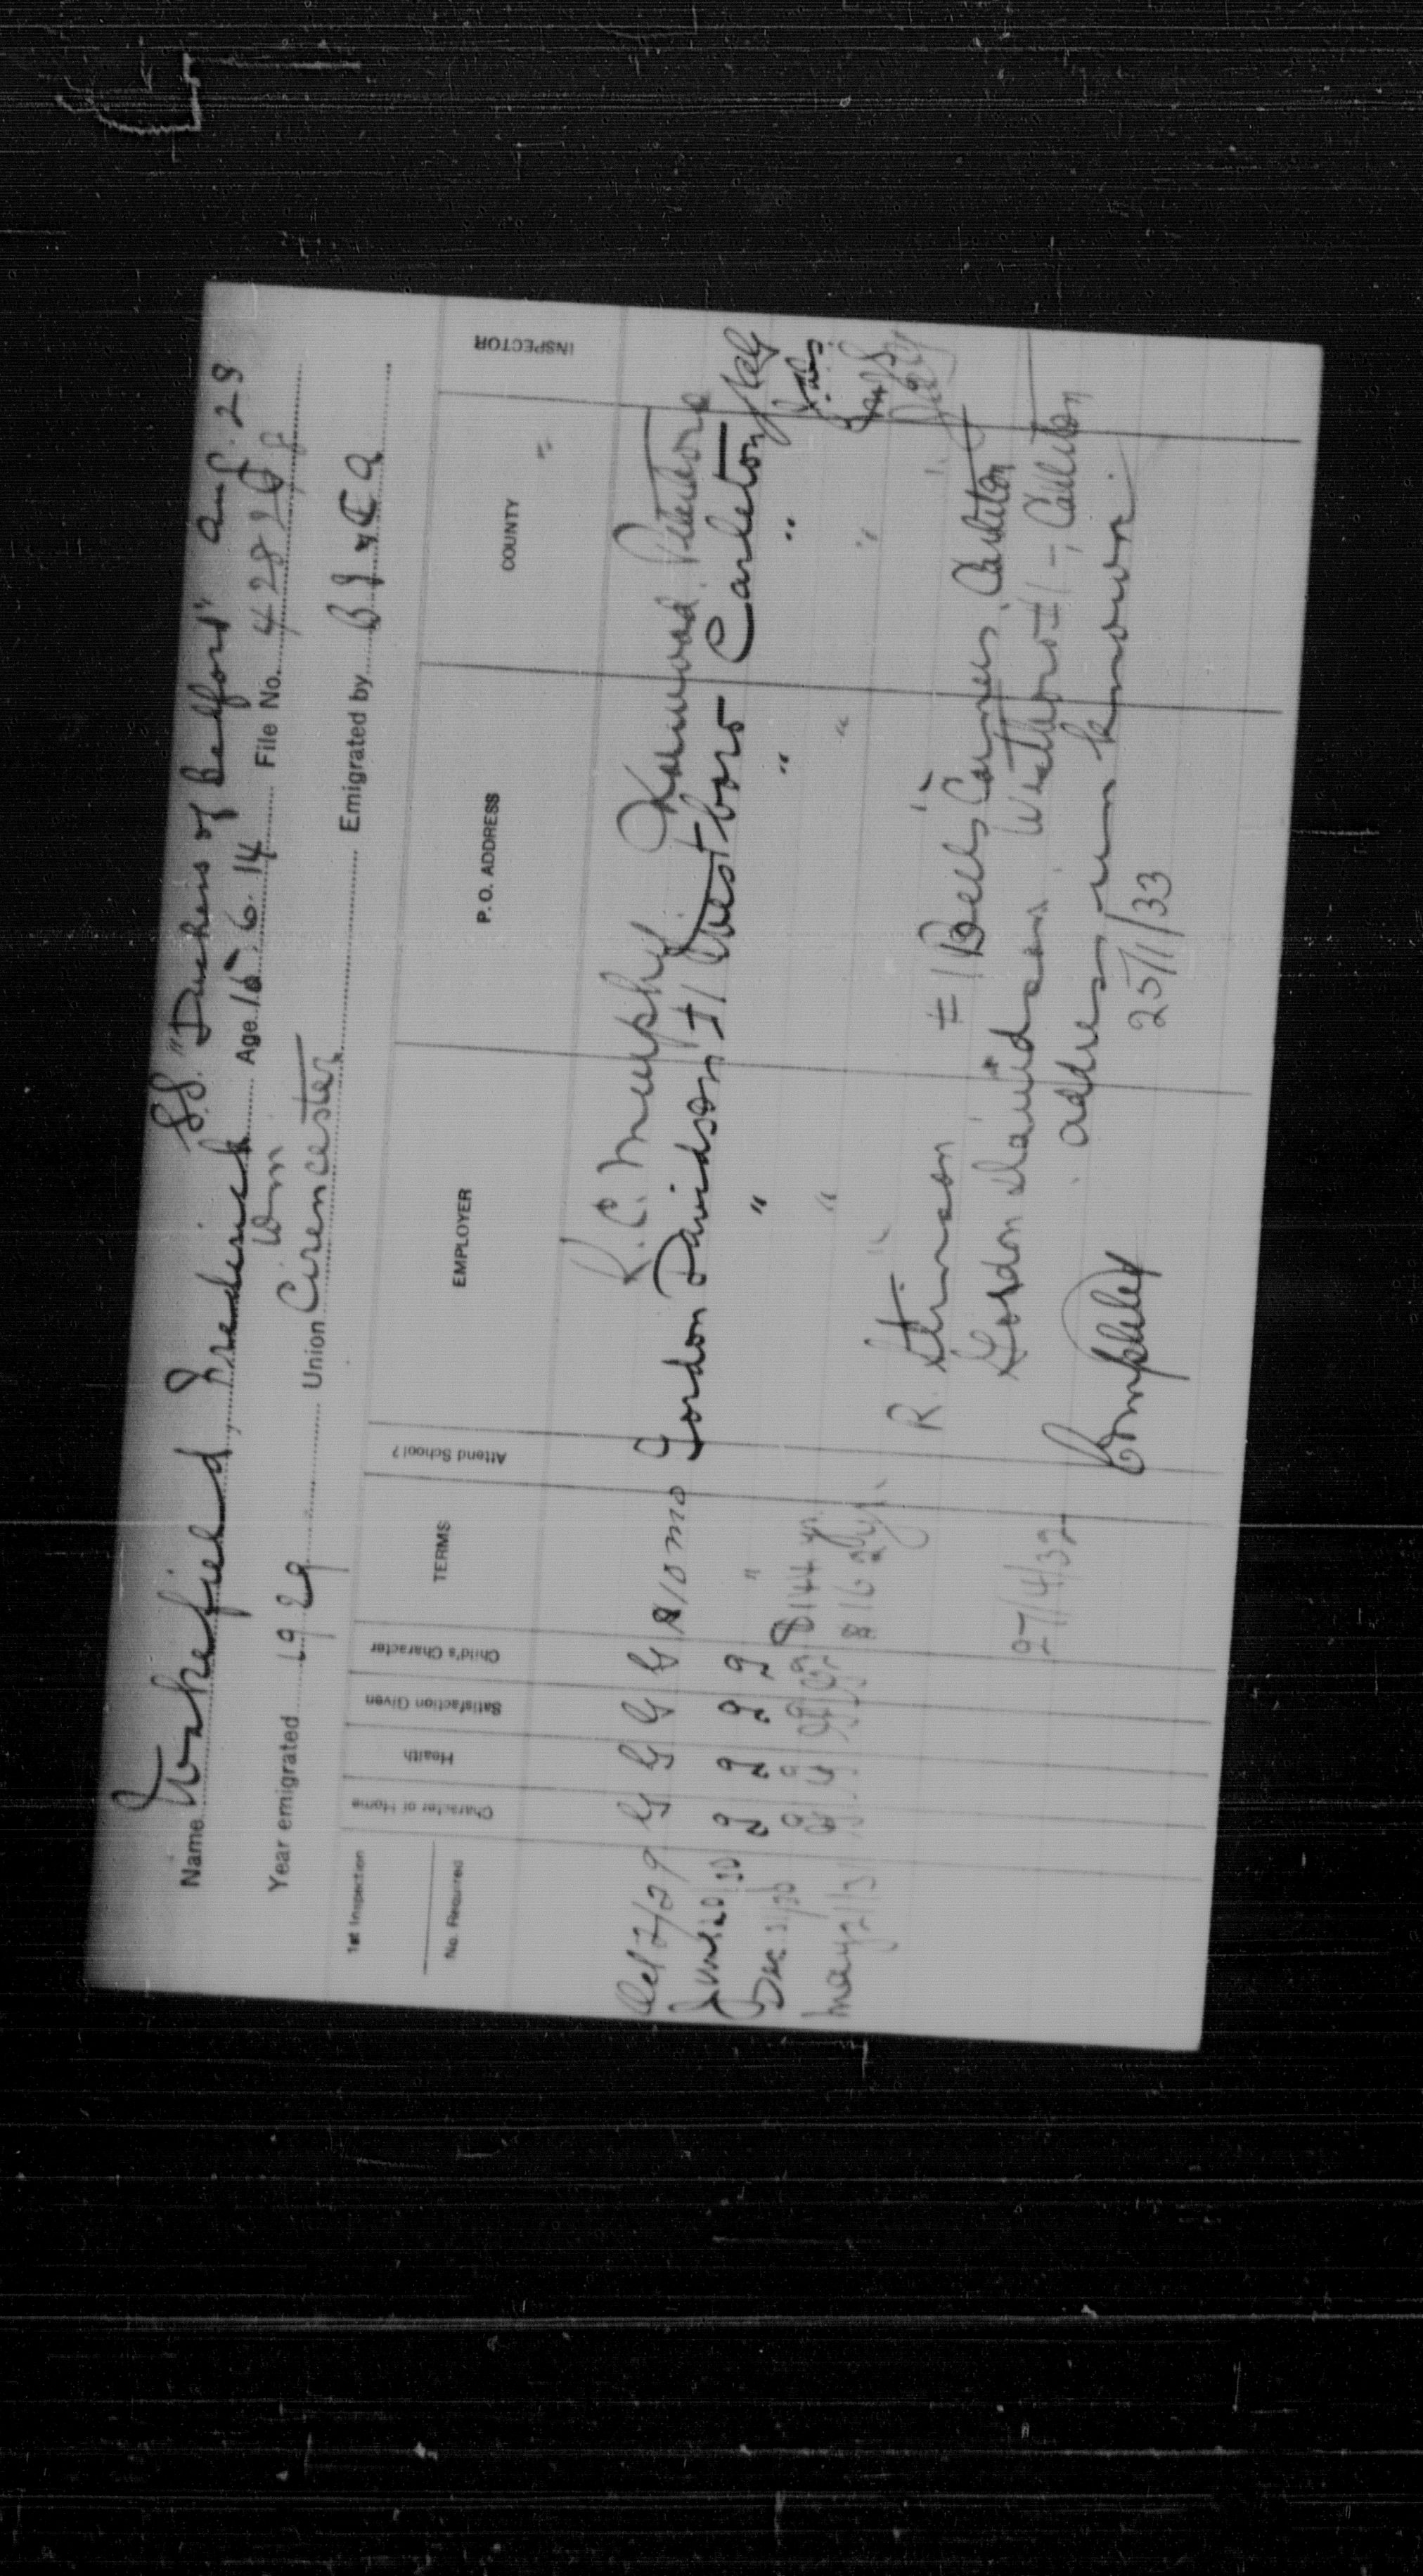 S.S. "Duchess of Bedford" Aug. 29
Name Wakefield, Frederick Age 15. 6. 14 File No.
Wm
Year emigrated 1929 Union Cirencester Emigrated by B I & E A
1st Inspection
No. Required
Character of Home Health Satisfaction Given Child's Character TERMS Attend School? EMPLOYER P. O. ADDRESS COUNTY INSPECTOR
R. C. Murphy
Oct 2/29 G G G G $10 mo Gordon Davidson #1 Westboro Carleton
June 20/30 g g g " " " "
Dec g g g $144 yr. " " "
May 21/31 $162 yr. " " "
R. Stinson #1 Bells Corners, Carleton
27/4/32 Gordon Davidson Westboro #1 - Carleton
address unknown.
Complete 25/1/33